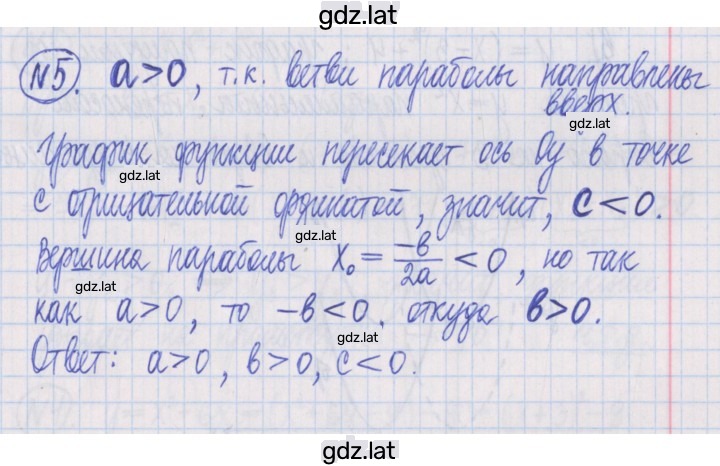 gdz.lat
№5. a>0, т.к. ветви параболы направлены
вверх.
gdz.lat
График функции пересекает ось Oy в точке
gdz.lat
с отрицательной ординатой, значит, c<0.
gdz.lat
Вершина параболы x₀ = -в/2a < 0, но так
gdz.lat
как a>0, то -в<0, откуда в>0.
gdz.lat
Ответ: a>0, в>0, c<0.
gdz.lat
gdz.lat